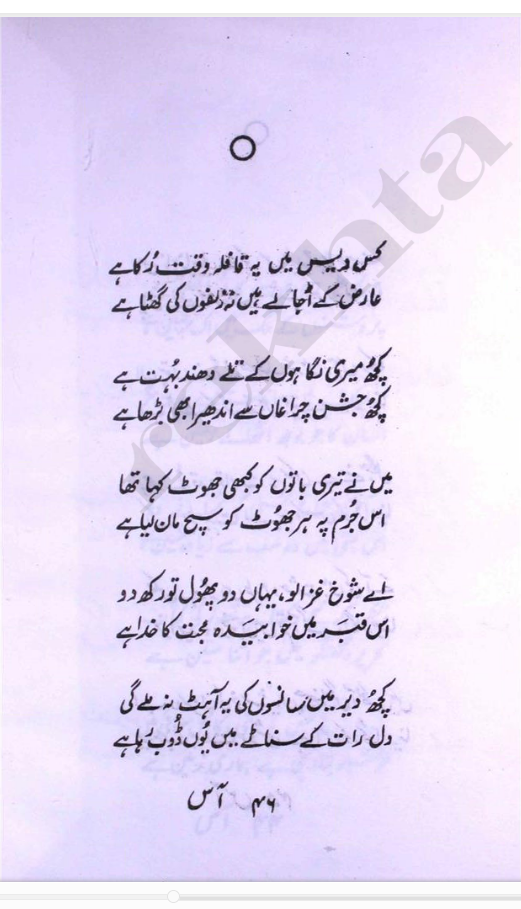 کس دیس میں یہ قافلۂ وقت رُکا ہے
عارض کے اُجالے ہیں نہ زلفوں کی گھٹا ہے
کچھ میری نگاہوں کے تلے دھند بہُت ہے
کچھ جشن چراغاں سے اندھیرا بھی بڑھا ہے
میں نے تیری باتوں کو کبھی جھوٹ کہا تھا
اس جُرم پہ ہر جھُوٹ کو سچ مان لیا ہے
اے شوخ غزالو، یہاں دو پھُول تو رکھ دو
اس قبر میں خوابیدہ محبت کا خدا ہے
کچھ دیر میں سانسوں کی یہ آہٹ نہ ملے گی
دل رات کے سناٹے میں یُوں ڈُوب رہا ہے
۴۶ آس
rekhta